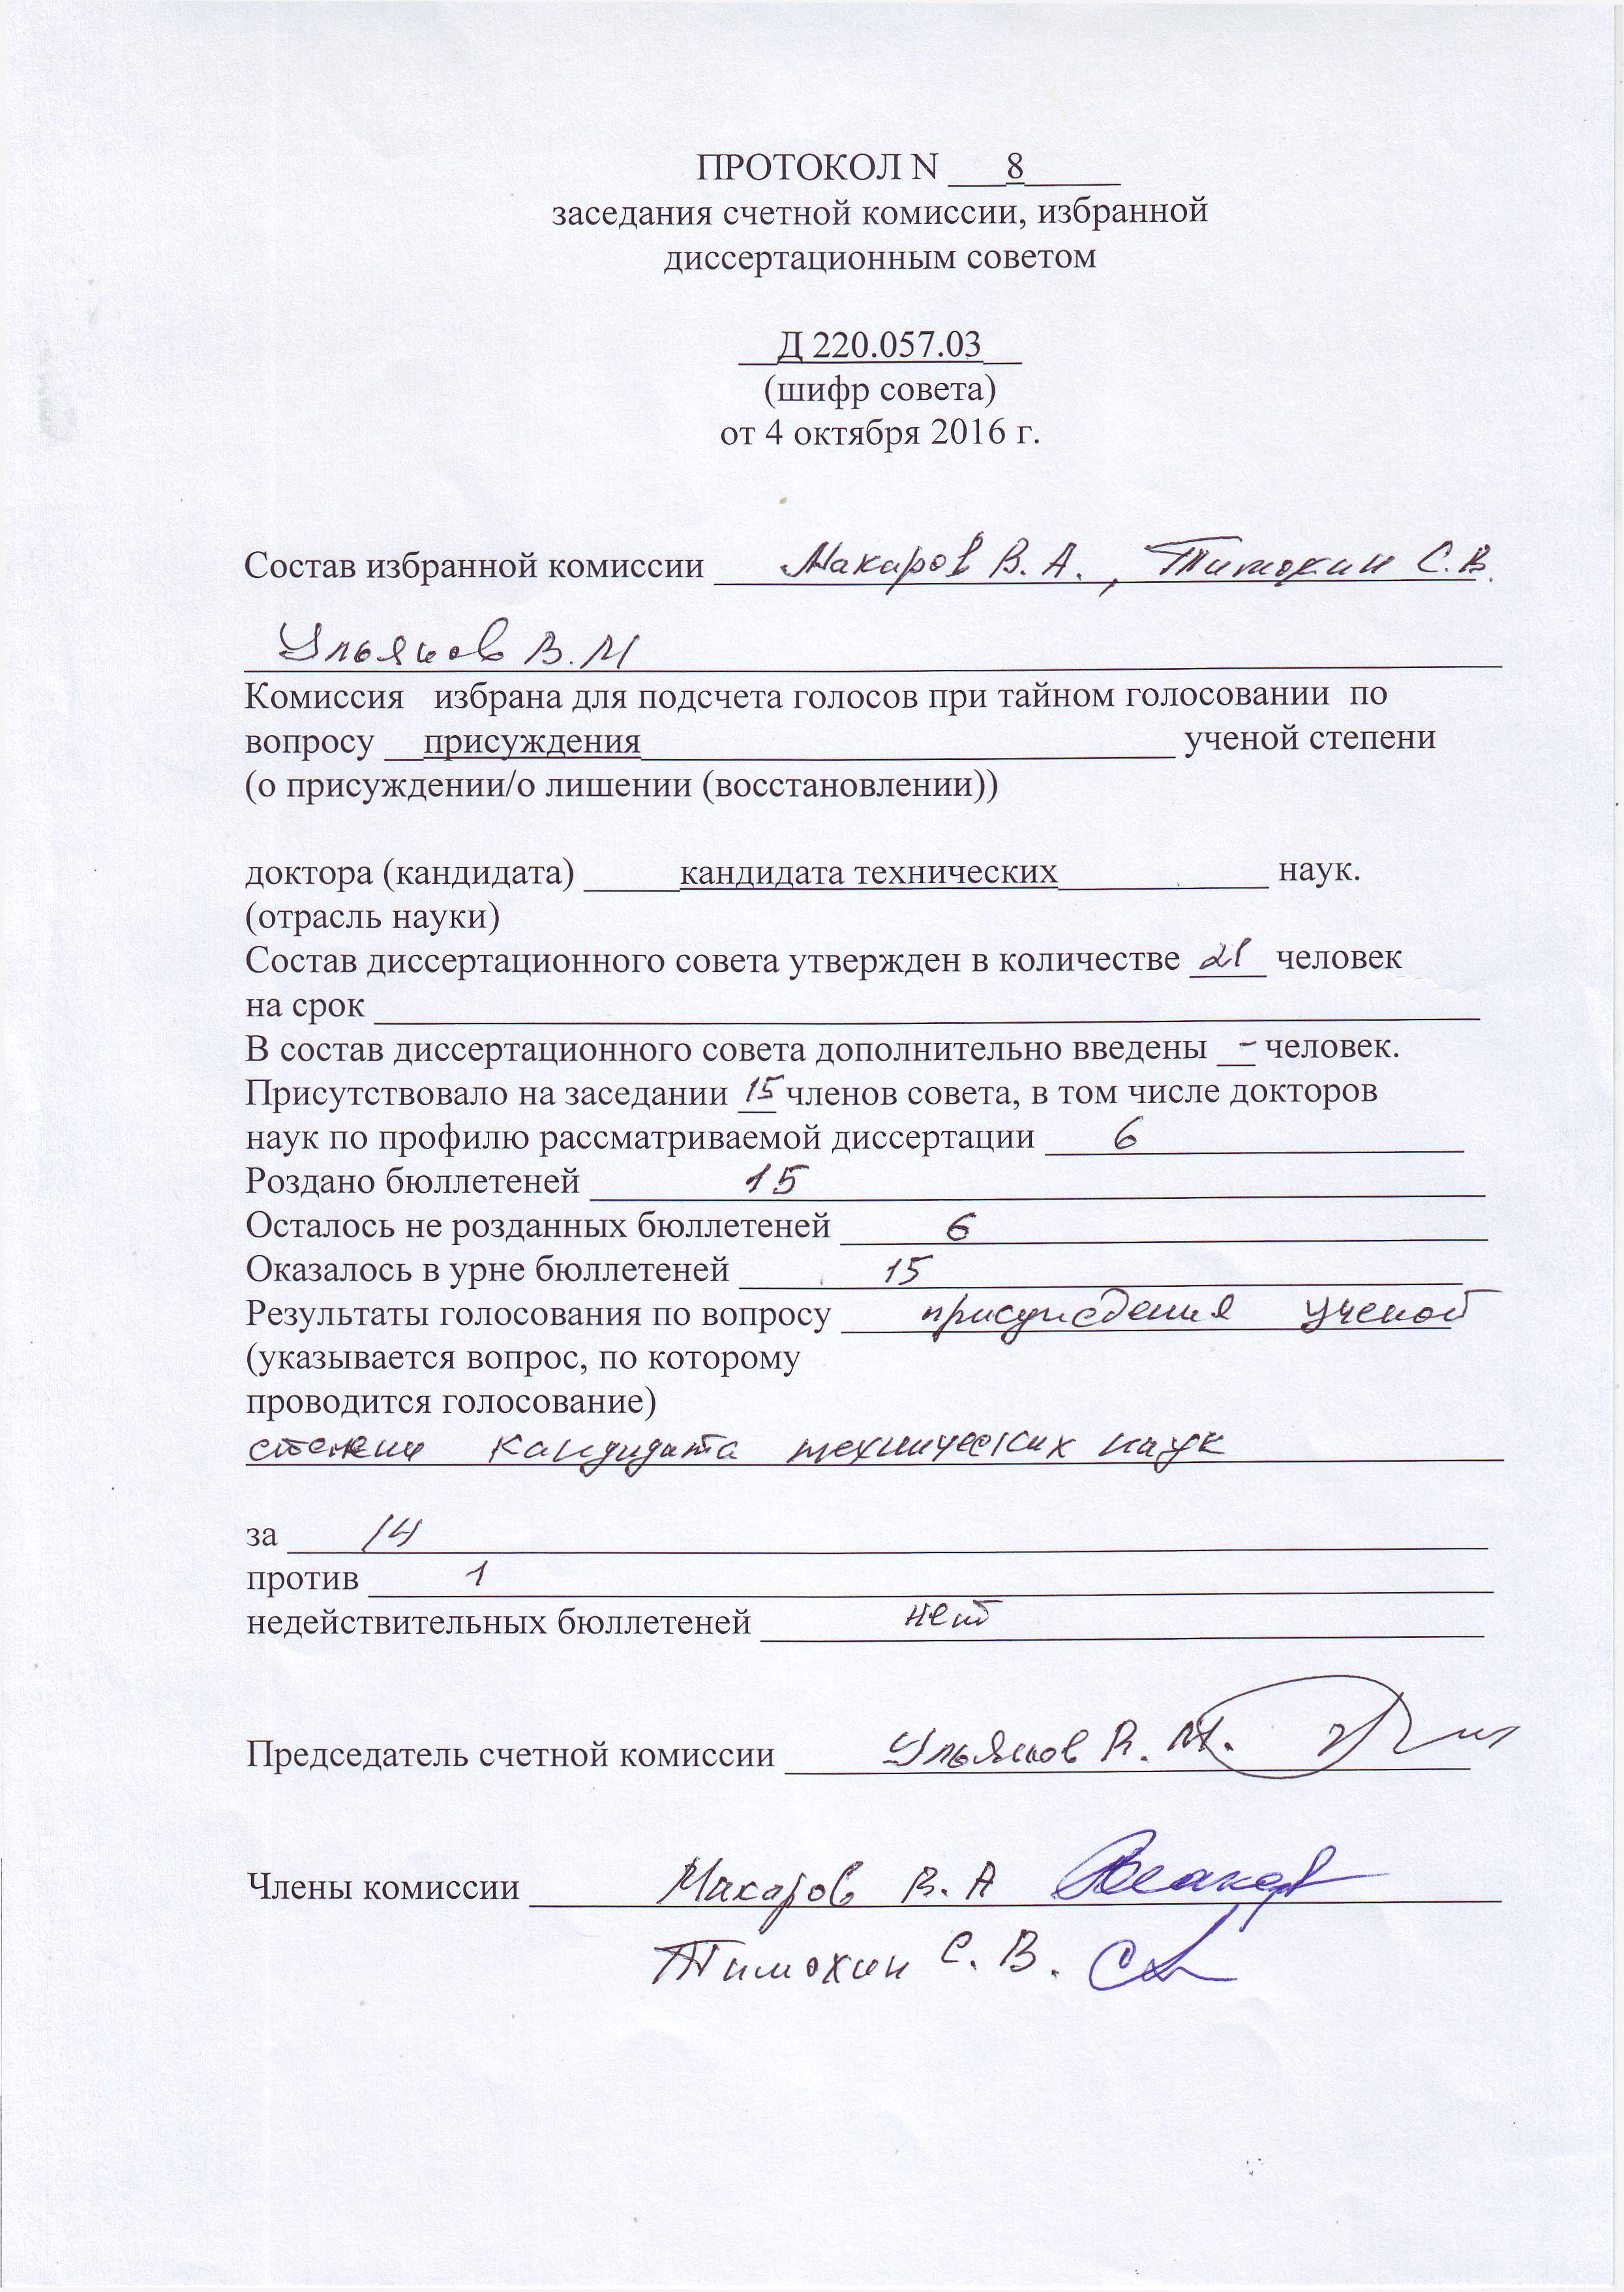 ПРОТОКОЛ N 8
заседания счетной комиссии, избранной
диссертационным советом
Д 220.057.03
(шифр совета)
от 4 октября 2016 г.
Состав избранной комиссии Макаров В. А., Тимохин С.В.
Ульянов В.М
Комиссия избрана для подсчета голосов при тайном голосовании по
вопросу присуждения ученой степени
(о присуждении/о лишении (восстановлении))
доктора (кандидата) кандидата технических наук.
(отрасль науки)
Состав диссертационного совета утвержден в количестве 21 человек
на срок
В состав диссертационного совета дополнительно введены - человек.
Присутствовало на заседании 15 членов совета, в том числе докторов
наук по профилю рассматриваемой диссертации 6
Роздано бюллетеней 15
Осталось не розданных бюллетеней 6
Оказалось в урне бюллетеней 15
Результаты голосования по вопросу присуждения ученой
(указывается вопрос, по которому
проводится голосование)
степени кандидата технических наук
за 14
против 1
недействительных бюллетеней нет
Председатель счетной комиссии Ульянов В. М.
Члены комиссии Макаров В. А
Тимохин С. В.